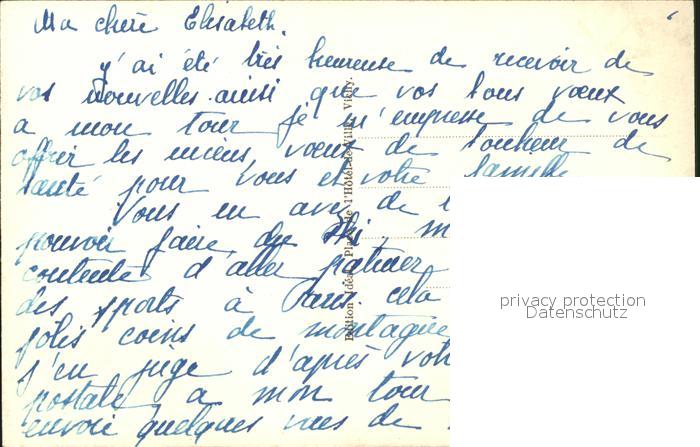 Ma chère Elisabeth.
j'ai été très heureuse de recevoir de
vos nouvelles ainsi que vos bons vœux
a mon tour je m'empresse de vous
offrir les miens vœux de bonheur de
santé pour vous et votre famille
Vous en avez de l
pouvoir faire du ski. m
contenté d'aller patiner
des sports à Paris cela
jolis coins de montagne
j'en juge d'après vot
postale a mon tour
envoie quelques vues de
Edition Idéal, Place de l'Hôtel de Ville, Vichy.
privacy protection
Datenschutz